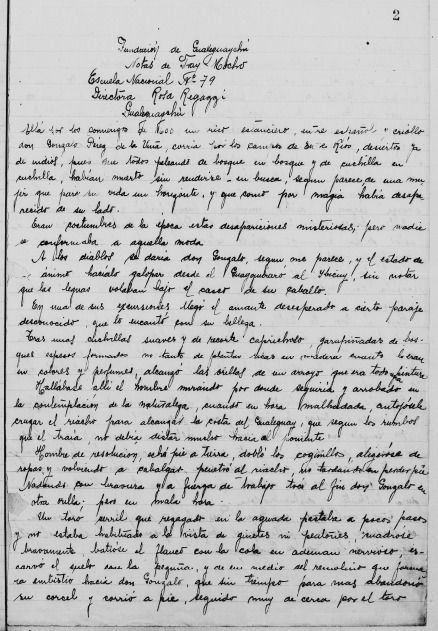 2
Fundación de Gualeguaychú
Notas de Fray Mocho
Escuela Nacional Nº 79
Directora Rosa Regazzi
Gualeguaychú
Allá por los comienzos de 1600 un rico estanciero, entre español y criollo
don Gonzalo Perez de la Uña, corria por los campos de En. e Ríos, desiertos ya
de indios, pues que todos peleando de bosque en bosque y de cuchilla en
cuchilla, habian muerto sin rendirse en busca, segun parece, de una mu-
jer que puso su vida un horizonte, y que como por magia habia desapa-
recido de su lado.
Eran costumbres de la época estas desapariciones misteriosas; pero nadie
se conformaba a aquella moda
A los diablos se daria don Gonzalo, segun me parece, y el estado de
ánimo haciale galopar desde el Guayquiraró al Ibicuy, sin notar
que las leguas volaban bajo el casco de su caballo.
En una de sus excursiones llegó el amante desesperado a cierto paraje
desconocido, que lo encantó con su belleza.
Tras unas cuchillas suaves y de recorte caprichoso, garapiñadas de bos-
ques espesos formados no tanto de plantas ricas en madera cuanto lo eran
en colores y perfumes, alcanzó las orillas de un arroyo que era todo pintura
Hallabase alli el hombre mirando por donde seguiria y arrobado en
la contemplacion de la naturaleza, cuando en hora malhadada, antojósele
cruzar el riacho para alcanzar la costa del Gualeguay, que segun los rumbos
que el traia, no debia distar mucho hacia el poniente
Hombre de resolucion, echó pie a tierra, dobló los cojinillos, aligeróse de
ropas y volviendo a cabalgar penetró al riacho, no tardando en perder pie
Nadando con bravura y a fuerza de trabajo tocó al fin don Gonzalo en
otra orilla; pero en mala hora.
Un toro cerril que rezagado en la aguada pastaba a pocos pasos
y no estaba habituado a la vista de ginetes ni peatones, cuadróse
bravamente batiose el flanco con la cola en ademan nervioso, es-
carvó el suelo con la pezuña, y de en medio del remolino que forma-
ra embistió hacia don Gonzalo, que sin tiempo para mas abandonó
su corcel y corrió a pie, seguido muy de cerca por el toro